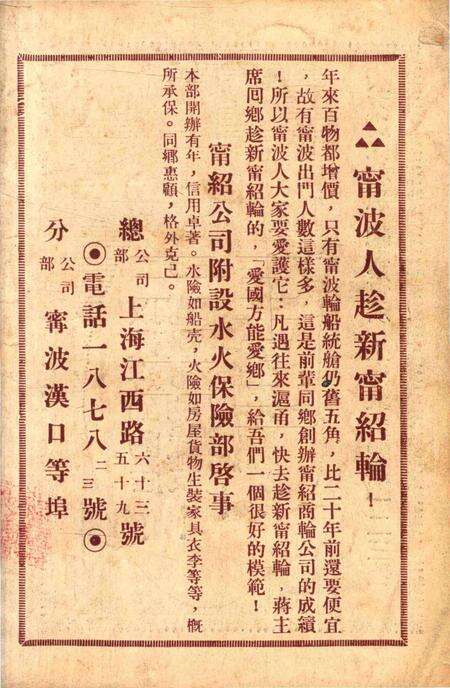 甯波人趁新甯紹輪！
年來百物都增價，只有甯波輪船統艙仍舊五角，比二十年前還要便宜
，故有甯波出門人數這樣多，這是前輩同鄉創辦甯紹商輪公司的成績
！所以甯波人大家要愛護它：凡遇往來滬甬，快去趁新甯紹輪，蔣主
席囘鄉趁新甯紹輪的，「愛國方能愛鄉」，給吾們一個很好的模範！
甯紹公司附設水火保險部啓事
本部開辦有年，信用卓著。水險如船壳，火險如房屋貨物生裝家具衣李等等，概
所承保。同鄉惠顧，格外克己。
總公司部 上海江西路六十三五十九號
電話一八七八二三號
分公司部 甯波漢口等埠